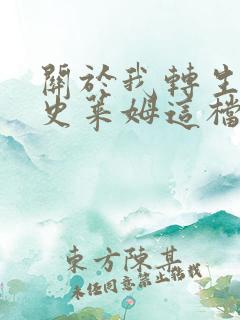 關於我轉生
史萊姆這檔
東方陳某
未經同意禁止轉載